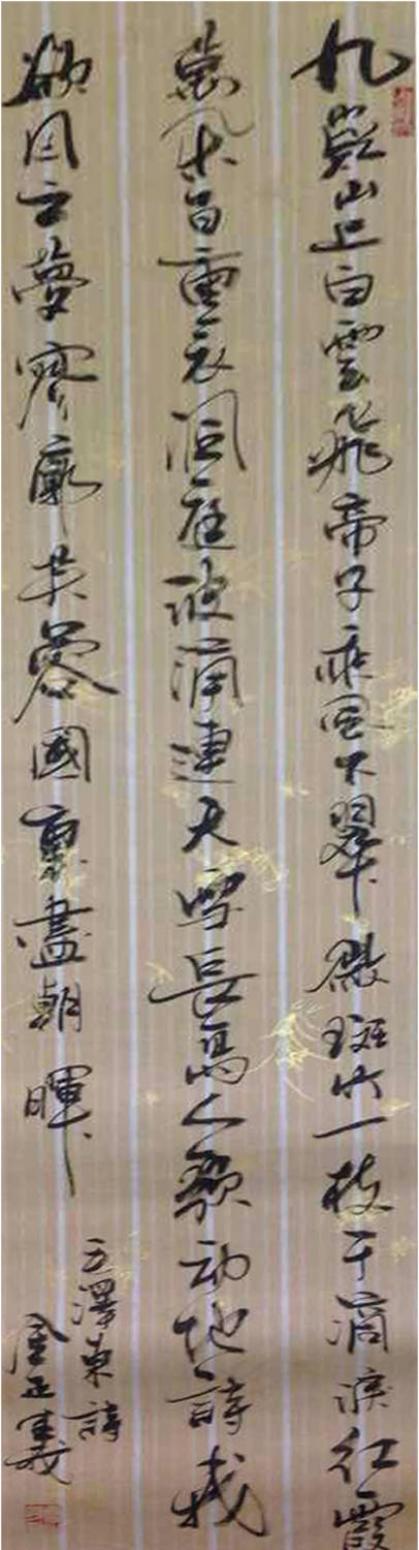 九嶷山上白雲飛帝子乘風下翠微斑竹一枝千滴淚紅霞
萬朵百重衣洞庭波涌連天雪長島人歌動地詩我
欲因之夢寥廓芙蓉國裏盡朝暉
毛澤東詩
金正